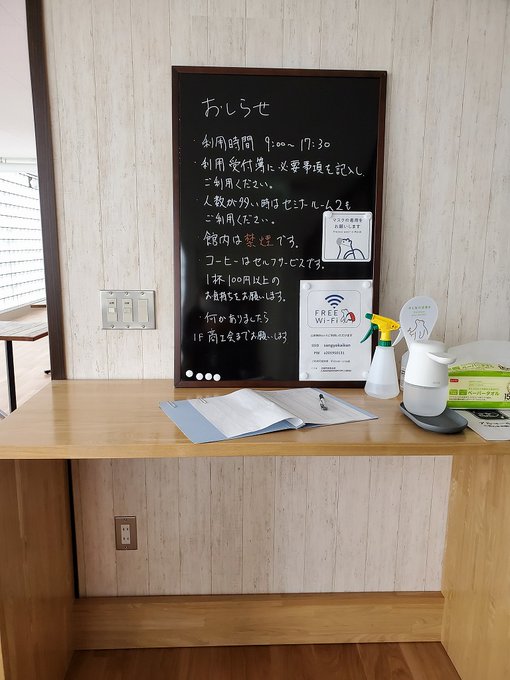 おしらせ
・利用時間 9:00〜17:30
・利用受付簿に必要事項を記入し、
ご利用ください。
・人数が多い時はセミナールーム2も
ご利用ください。
・館内は禁煙です。
・コーヒーはセルフサービスです。
1杯100円以上の
お気持ちをお願いします。
・何かありましたら
1F 商工会までお願いします
マスクの着用を
お願いします
FREE
Wi-Fi
SSID sangyokaikan
ペーパータオル